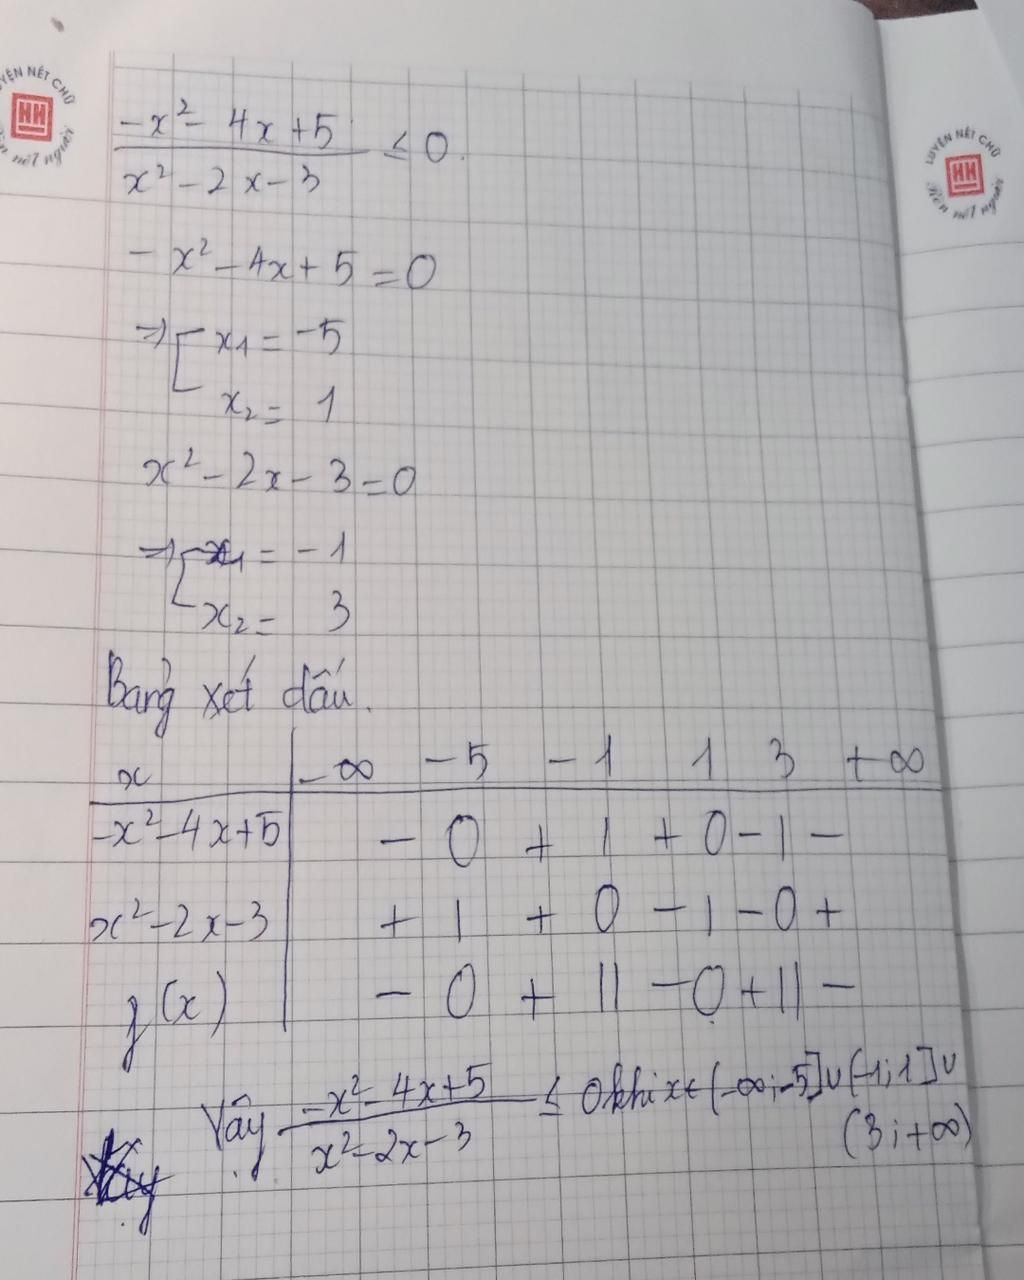 LUYỆN NÉT CHỮ
HH
Rèn nết người
-x² - 4x + 5 / x² - 2x - 3 ≤ 0.
- x² - 4x + 5 = 0
⇒ [ x1 = -5
x2 = 1
x² - 2x - 3 = 0
⇒ [ x1 = -1
x2 = 3
Bảng xét dấu.
x | -∞ -5 -1 1 3 +∞
-x² - 4x + 5 | - 0 + | + 0 - | -
x² - 2x - 3 | + | + 0 - | - 0 +
f(x) | - 0 + || - 0 + || -
Vậy -x² - 4x + 5 / x² - 2x - 3 ≤ 0 khi x ∈ (-∞; -5] ∪ (-1; 1] ∪
(3; +∞)